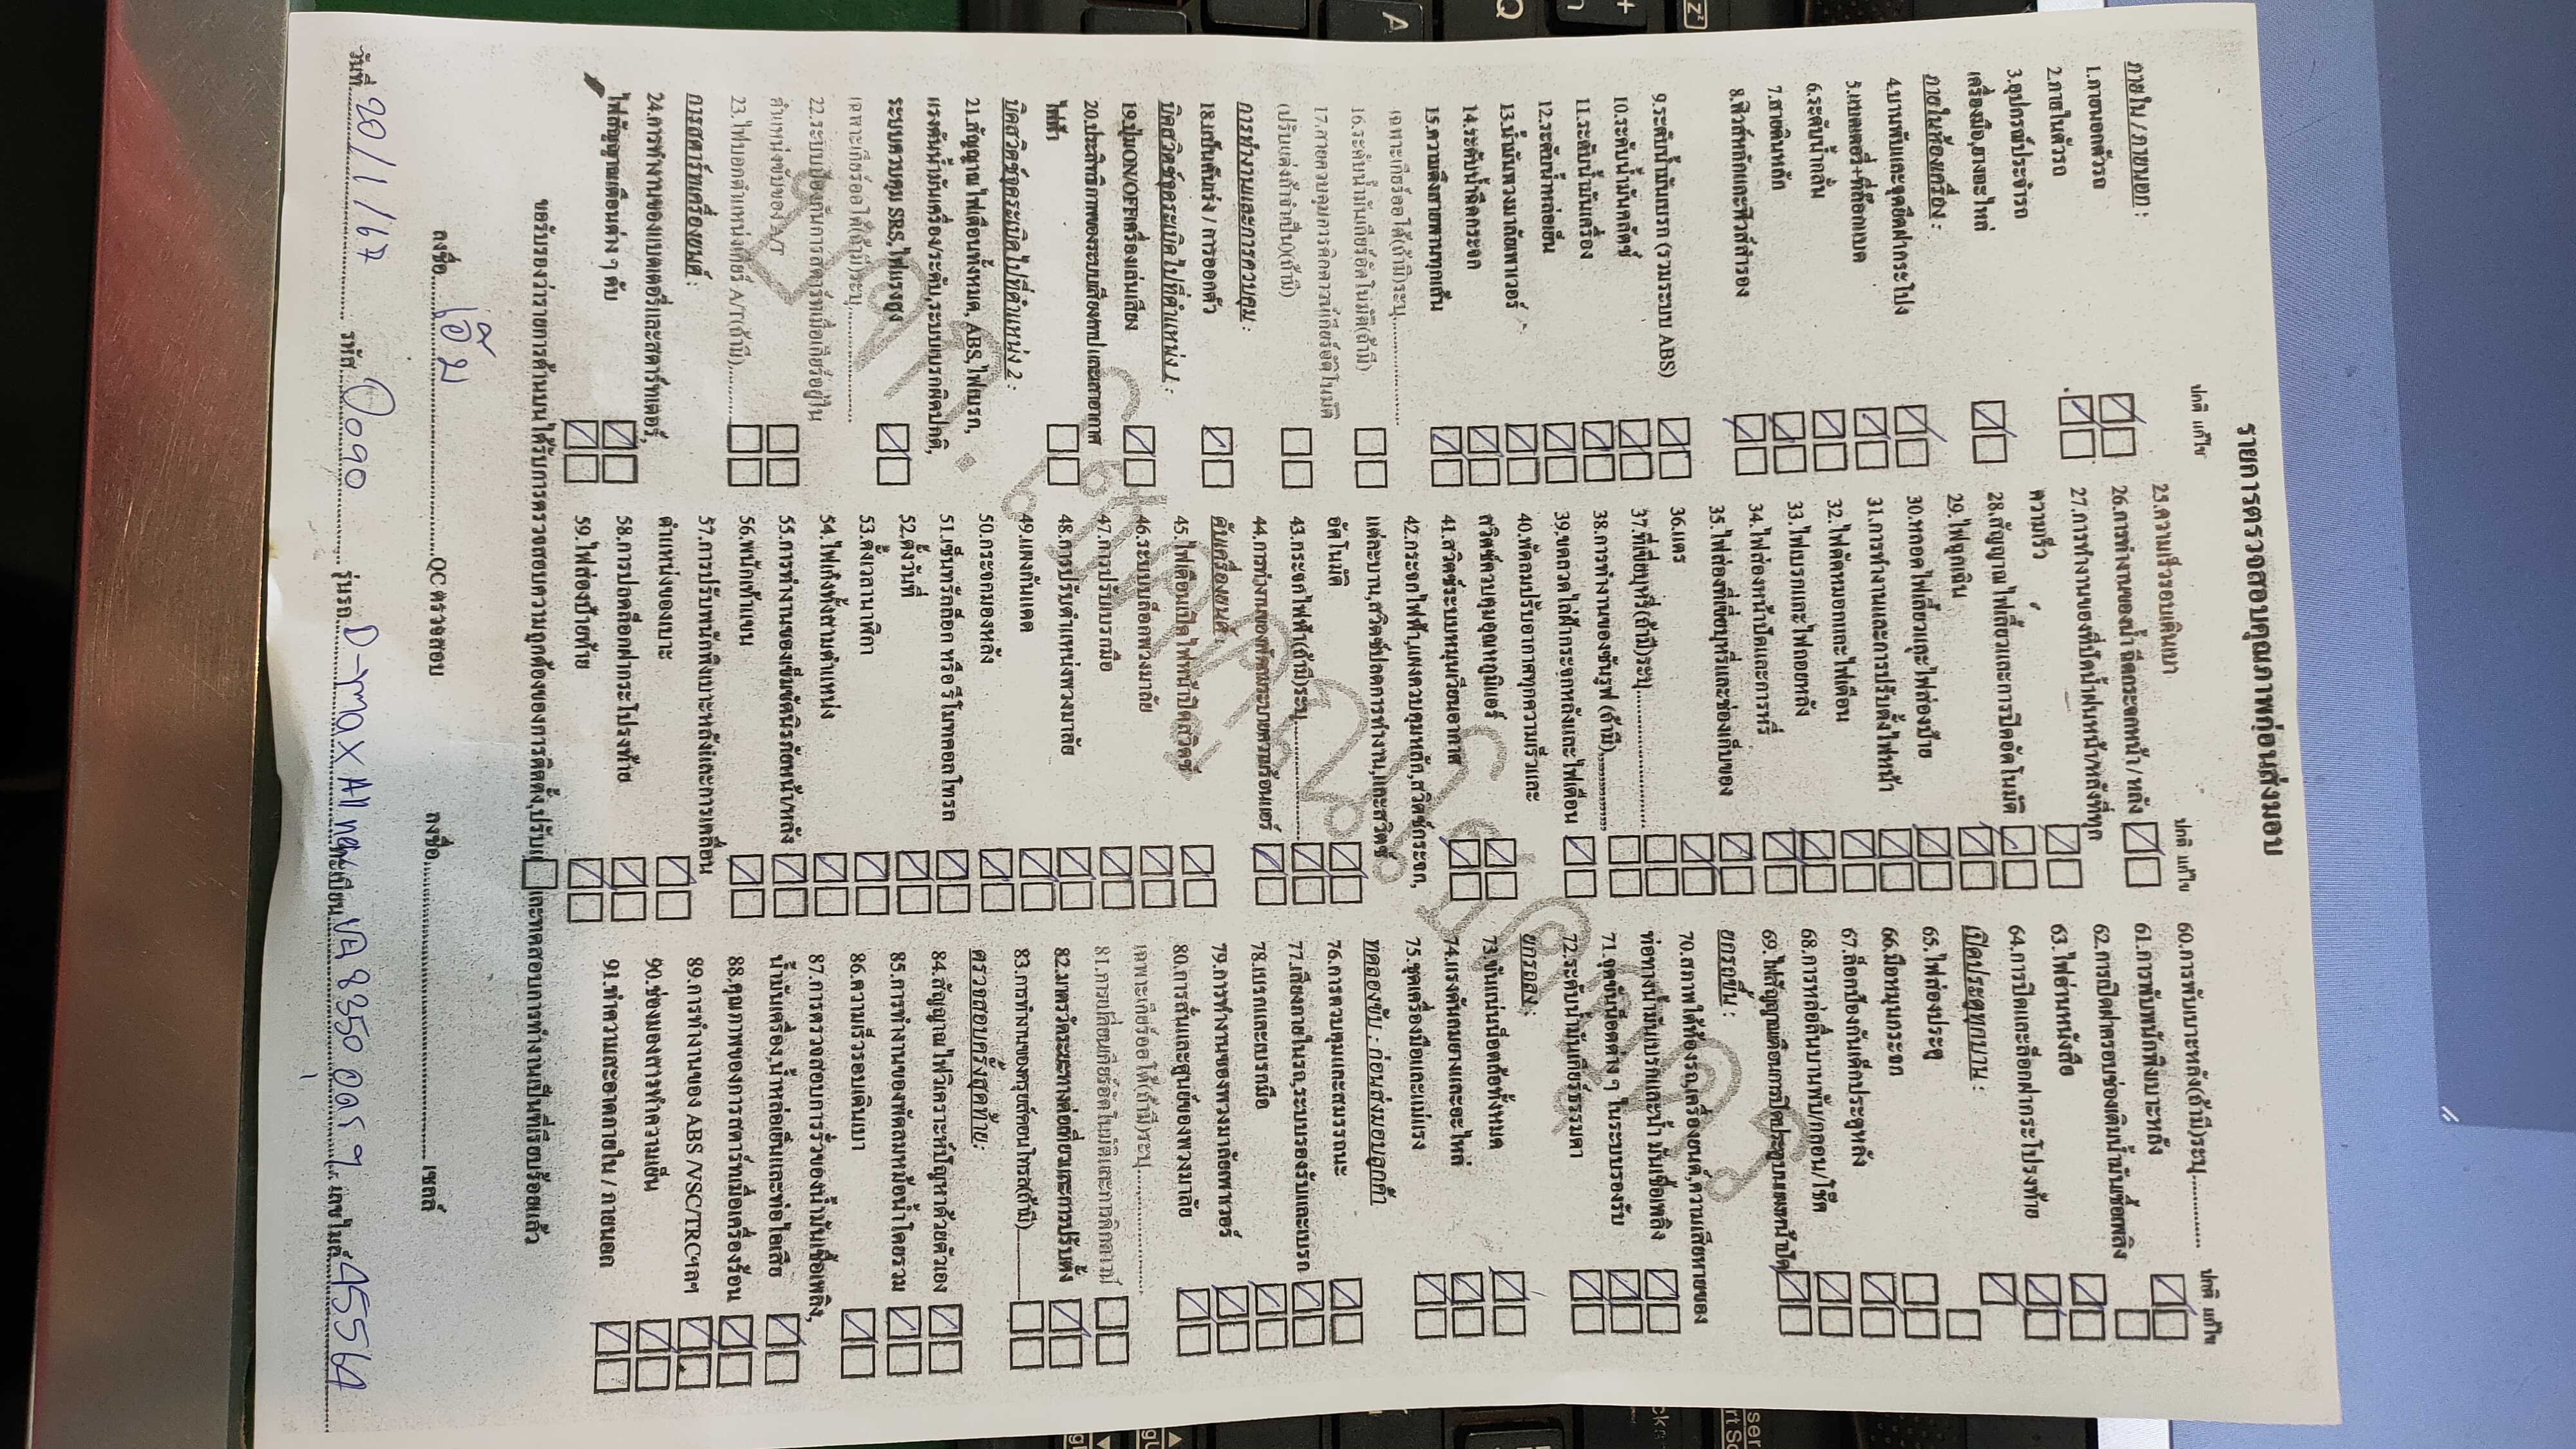 รายการตรวจสอบคุณภาพก่อนส่งมอบ
ปกติ แก้ไข
ภายใน / ภายนอก :
1.ภายนอกตัวรถ
2.ภายในตัวรถ
3.อุปกรณ์ประจำรถ
เครื่องมือ,ยางอะไหล่
ภายในห้องเครื่อง :
4.บานพับและจุดยึดฝากระโปง
5.แบตเตอรี่+ที่ล๊อกแบต
6.ระดับน้ำกลั่น
7.สายดินหลัก
8.ฟิวส์หลักและฟิวส์สำรอง
9.ระดับน้ำมันเบรก (รวมระบบ ABS)
10.ระดับน้ำมันคลัตช์
11.ระดับน้ำมันเครื่อง
12.ระดับน้ำหล่อเย็น
13.น้ำมันพวงมาลัยพาเวอร์
14.ระดับน้ำฉีดกระจก
15.ความตึงสายพานทุกเส้น
เฉพาะเกียร์ออโต้(ถ้ามี)ระบุ...............
16.ระดับน้ำมันเกียร์อัตโนมัติ(ถ้ามี)
17.สายควบคุมการคิกดาวน์เกียร์อัตโนมัติ
(ปรับแต่งถ้าจำเป็น)(ถ้ามี)
การทำงานและการควบคุม :
18.เป็นคันเร่ง / การออกตัว
บิดสวิตช์จุดระเบิดไปที่ตำแหน่ง 1 :
19.ปุ่มON/OFFเครื่องเล่นเสียง
20.ประสิทธิภาพของระบบเสียง/เทป และเสาอากาศ
ไฟฟ้า
บิดสวิตช์จุดระเบิดไปที่ตำแหน่ง 2 :
21.สัญญาณไฟเตือนทั้งหมด, ABS,ไฟเบรก,
แรงดันน้ำมันเครื่อง/ระดับ,ระบบเบรกผิดปกติ,
ระบบควบคุม SRS,ไฟแรงสูง
เฉพาะเกียร์ออโต้(ถ้ามี)ระบุ...............
22.ระบบป้องกันการสตาร์ทเมื่อเกียร์อยู่ใน
ตำแหน่งขับของ A/T
23.ไฟบอกตำแหน่งเกียร์ A/T(ถ้ามี)...........
การสตาร์ทเครื่องยนต์ :
24.การทำงานของแบตเตอรี่และสตาร์ทเตอร์,
ไฟสัญญาณเตือนต่าง ๆ ดับ
ปกติ แก้ไข
25.ความเร็วรอบเดินเบา
26.การทำงานของน้ำ ฉีดกระจกหน้า / หลัง
27.การทำงานของที่ปัดน้ำฝนหน้า/หลังที่ทุก
ความเร็ว
28.สัญญาณไฟเลี้ยวและการปิดอัตโนมัติ
29.ไฟฉุกเฉิน
30.หลอดไฟเลี้ยวและไฟส่องป้าย
31.การทำงานและการปรับตั้งไฟหน้า
32.ไฟตัดหมอกและไฟเตือน
33.ไฟเบรกและไฟถอยหลัง
34.ไฟส่องหน้าปัดและการหรี่
35.ไฟส่องที่เขี่ยบุหรี่และช่องเก็บของ
36.แตร
37.ที่เขี่ยบุหรี่(ถ้ามี)ระบุ...........................
38.การทำงานของซันรูฟ (ถ้ามี)...............
39.ขดลวดไล่ฝ้ากระจกหลังและไฟเตือน
40.พัดลมปรับอากาศทุกความเร็วและ
สวิตช์ควบคุมอุณหภูมิแอร์
41.สวิตช์ระบบหมุนเวียนอากาศ
42.กระจกไฟฟ้า,แผงควบคุมหลัก,สวิตช์กระจก,
แต่ละบาน,สวิตช์ปลดการทำงาน,และสวิตช์
อัตโนมัติ
43.กระจกไฟฟ้า(ถ้ามี)ระบุ.......................
44.การทำงานของพัดลมระบายความร้อนแอร์
ดับเครื่องยนต์ :
45.ไฟเตือนเปิดไฟหน้าปิดสวิตช์
46.ระบบล็อกพวงมาลัย
47.การปรับเบรกมือ
48.การปรับตำแหน่งพวงมาลัย
49.แผงกันแดด
50.กระจกมองหลัง
51.เซ็นทรัลล็อก หรือ รีโมทคอลโทรล
52.ตั้งวันที่
53.ตั้งเวลานาฬิกา
54.ไฟเก๋งทั้งสามตำแหน่ง
55.การทำงานของเข็มขัดนิรภัยหน้า/หลัง
56.พนักเท้าแขน
57.การปรับพนักพิงเบาะหลังและการเคลื่อน
ตำแหน่งของเบาะ
58.การปลดล็อกฝากระโปรงท้าย
59.ไฟส่องป้ายท้าย
ปกติ แก้ไข
60.การพับเบาะหลัง(ถ้ามี)ระบุ............
61.การพับพนักพิงเบาะหลัง
62.การเปิดฝาครอบช่องเติมน้ำมันเชื้อเพลิง
63.ไฟอ่านหนังสือ
64.การปิดและล็อกฝากระโปรงท้าย
เปิดประตูทุกบาน :
65.ไฟส่องประตู
66.มือหมุนกระจก
67.ล็อกป้องกันเด็กประตูหลัง
68.การหล่อลื่นบานพับ/กลอน/โช๊ค
69.ไฟสัญญาณเตือนการปิดประตูบนแผงหน้าปัด
ยกรถขึ้น :
70.สภาพใต้ท้องรถ,เครื่องยนต์,ความเสียหายของ
ท่อทางน้ำมันเบรกและน้ำ มันเชื้อเพลิง
71.จุดขันน๊อตต่าง ๆ ในระบบรองรับ
72.ระดับน้ำมันเกียร์ธรรมดา
ยกรถลง :
73.ขันแน่นน๊อตล้อทั้งหมด
74.แรงดันลมยางและอะไหล่
75.ชุดเครื่องมือและแม่แรง
ทดลองขับ : ก่อนส่งมอบลูกค้า
76.การควบคุมและสมรรถนะ
77.เสียงภายในรถ,ระบบรองรับและเบรก
78.เบรกและเบรกมือ
79.การทำงานของพวงมาลัยพาเวอร์
80.การสั่นและศูนย์ของพวงมาลัย
เฉพาะเกียร์ออโต้(ถ้ามี)ระบุ...............
81.การเปลี่ยนเกียร์อัตโนมัติและการคิกดาวน์
82.มาตรวัดระยะทางต่อเที่ยวและการปรับตั้ง
83.การทำงานของครุยส์คอนโทรล(ถ้ามี)...........
ตรวจสอบครั้งสุดท้าย:
84.สัญญาณไฟวิเคราะห์ปัญหาด้วยตัวเอง
85.การทำงานของพัดลมหม้อน้ำโดยรวม
86.ความเร็วรอบเดินเบา
87.การตรวจสอบการรั่วของน้ำมันเชื้อเพลิง,
น้ำมันเครื่อง,น้ำหล่อเย็นและท่อไอเสีย
88.คุณภาพของการสตาร์ทเมื่อเครื่องร้อน
89.การทำงานของ ABS /VSC/TRCฯลฯ
90.ช่องมองสารทำความเย็น
91.ทำความสะอาดภายใน / ภายนอก
ขอรับรองว่ารายการด้านบนได้รับการตรวจสอบความถูกต้องของการติดตั้ง,ปรับแ และทดสอบการทำงานเป็นที่เรียบร้อยแล้ว
ลงชื่อ QC ตรวจสอบ ลงชื่อ เซลล์
วันที่ 20/1/67 รหัส รุ่นรถ D-max All new ทะเบียน เลขไมล์